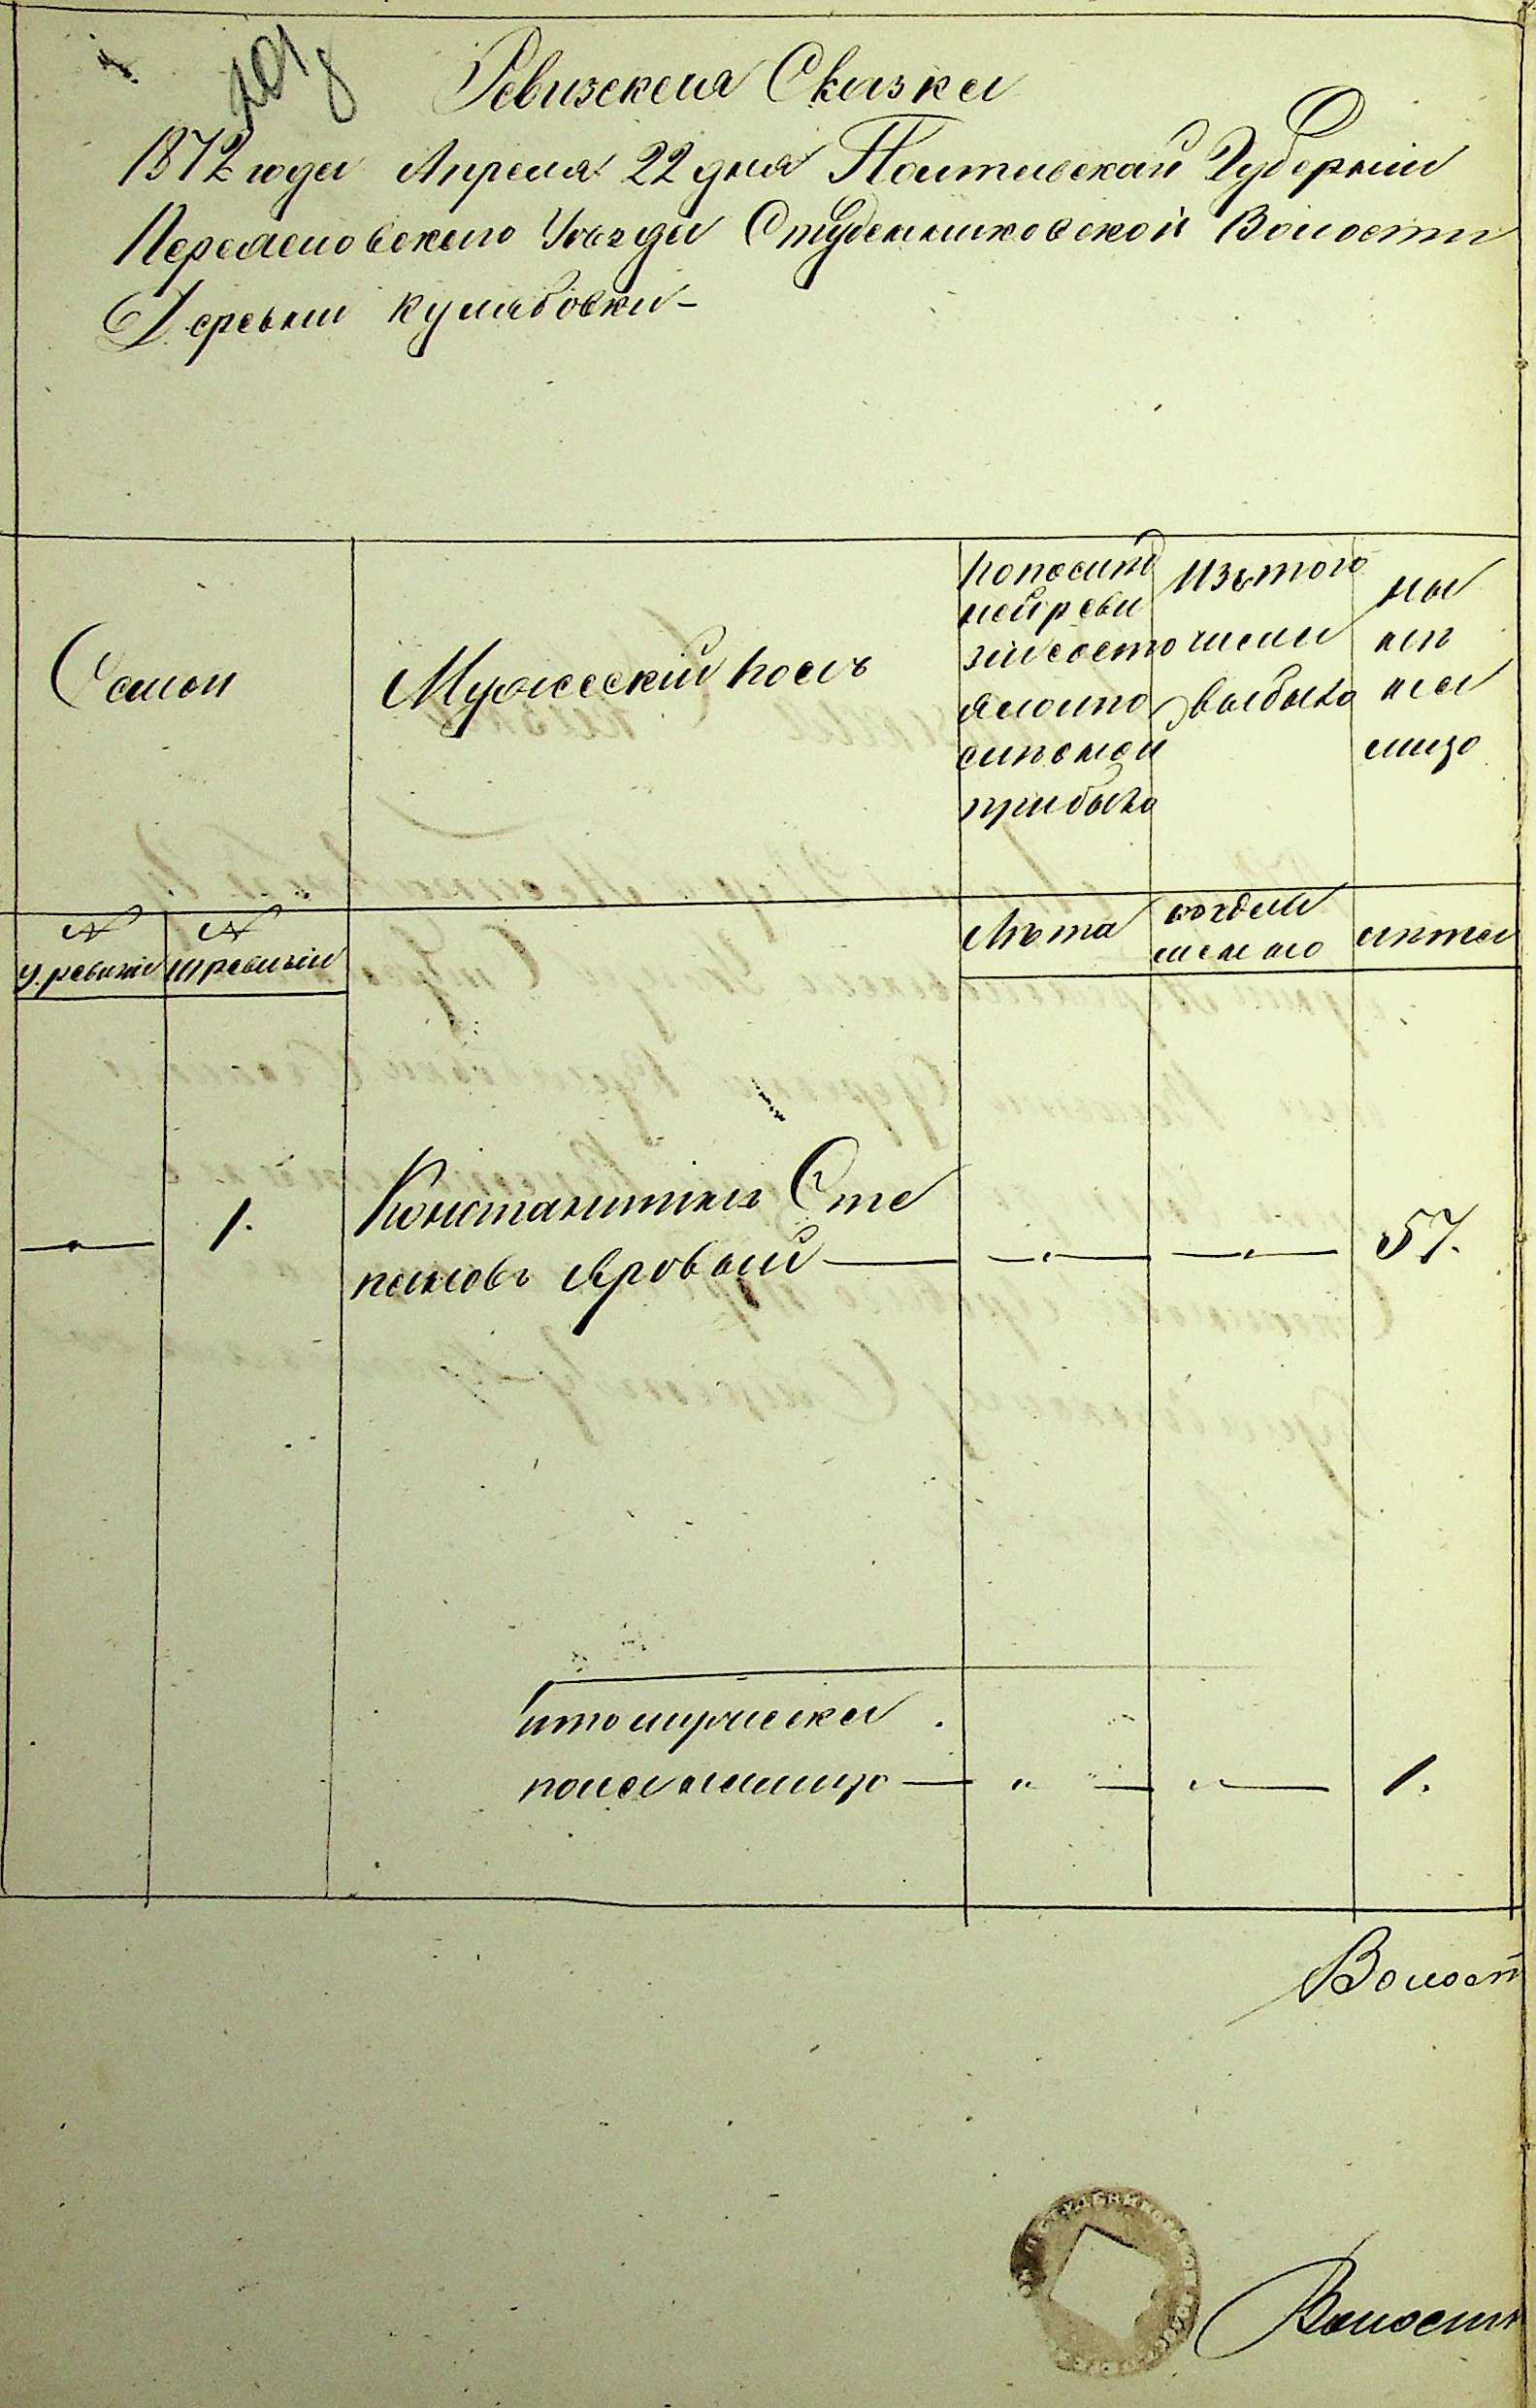 Ревизская Сказка
1872 года Апреля 22 дня Полтавской Губернии
Переяславского Уезда Студениковской Волости
Деревни кулябовки-
Семьи
Мужеский полъ
По послед
ней реви
зіи состо
яло и по
оной
прибыло
Изъ того
числа
выбыло
Ны
не
на
лицо
№
ревизіи
№
ревизіи
Лѣта
когда
именно
лѣта
1.
Константинъ Сте
пановъ Яровый
57.
итого мужеска
пола налицо
1.
Волост
Волостн